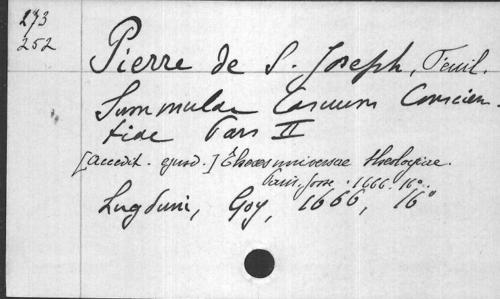 273
252
Pierre de S. Joseph, Feuil.
Summulae Casuum Conscien-
tiae Pars II
[accedit. ejusd.] Theses universae theologiae.
Paris, Josse. 1666. 16o.
Lugduni, Goy, 1666, 16o